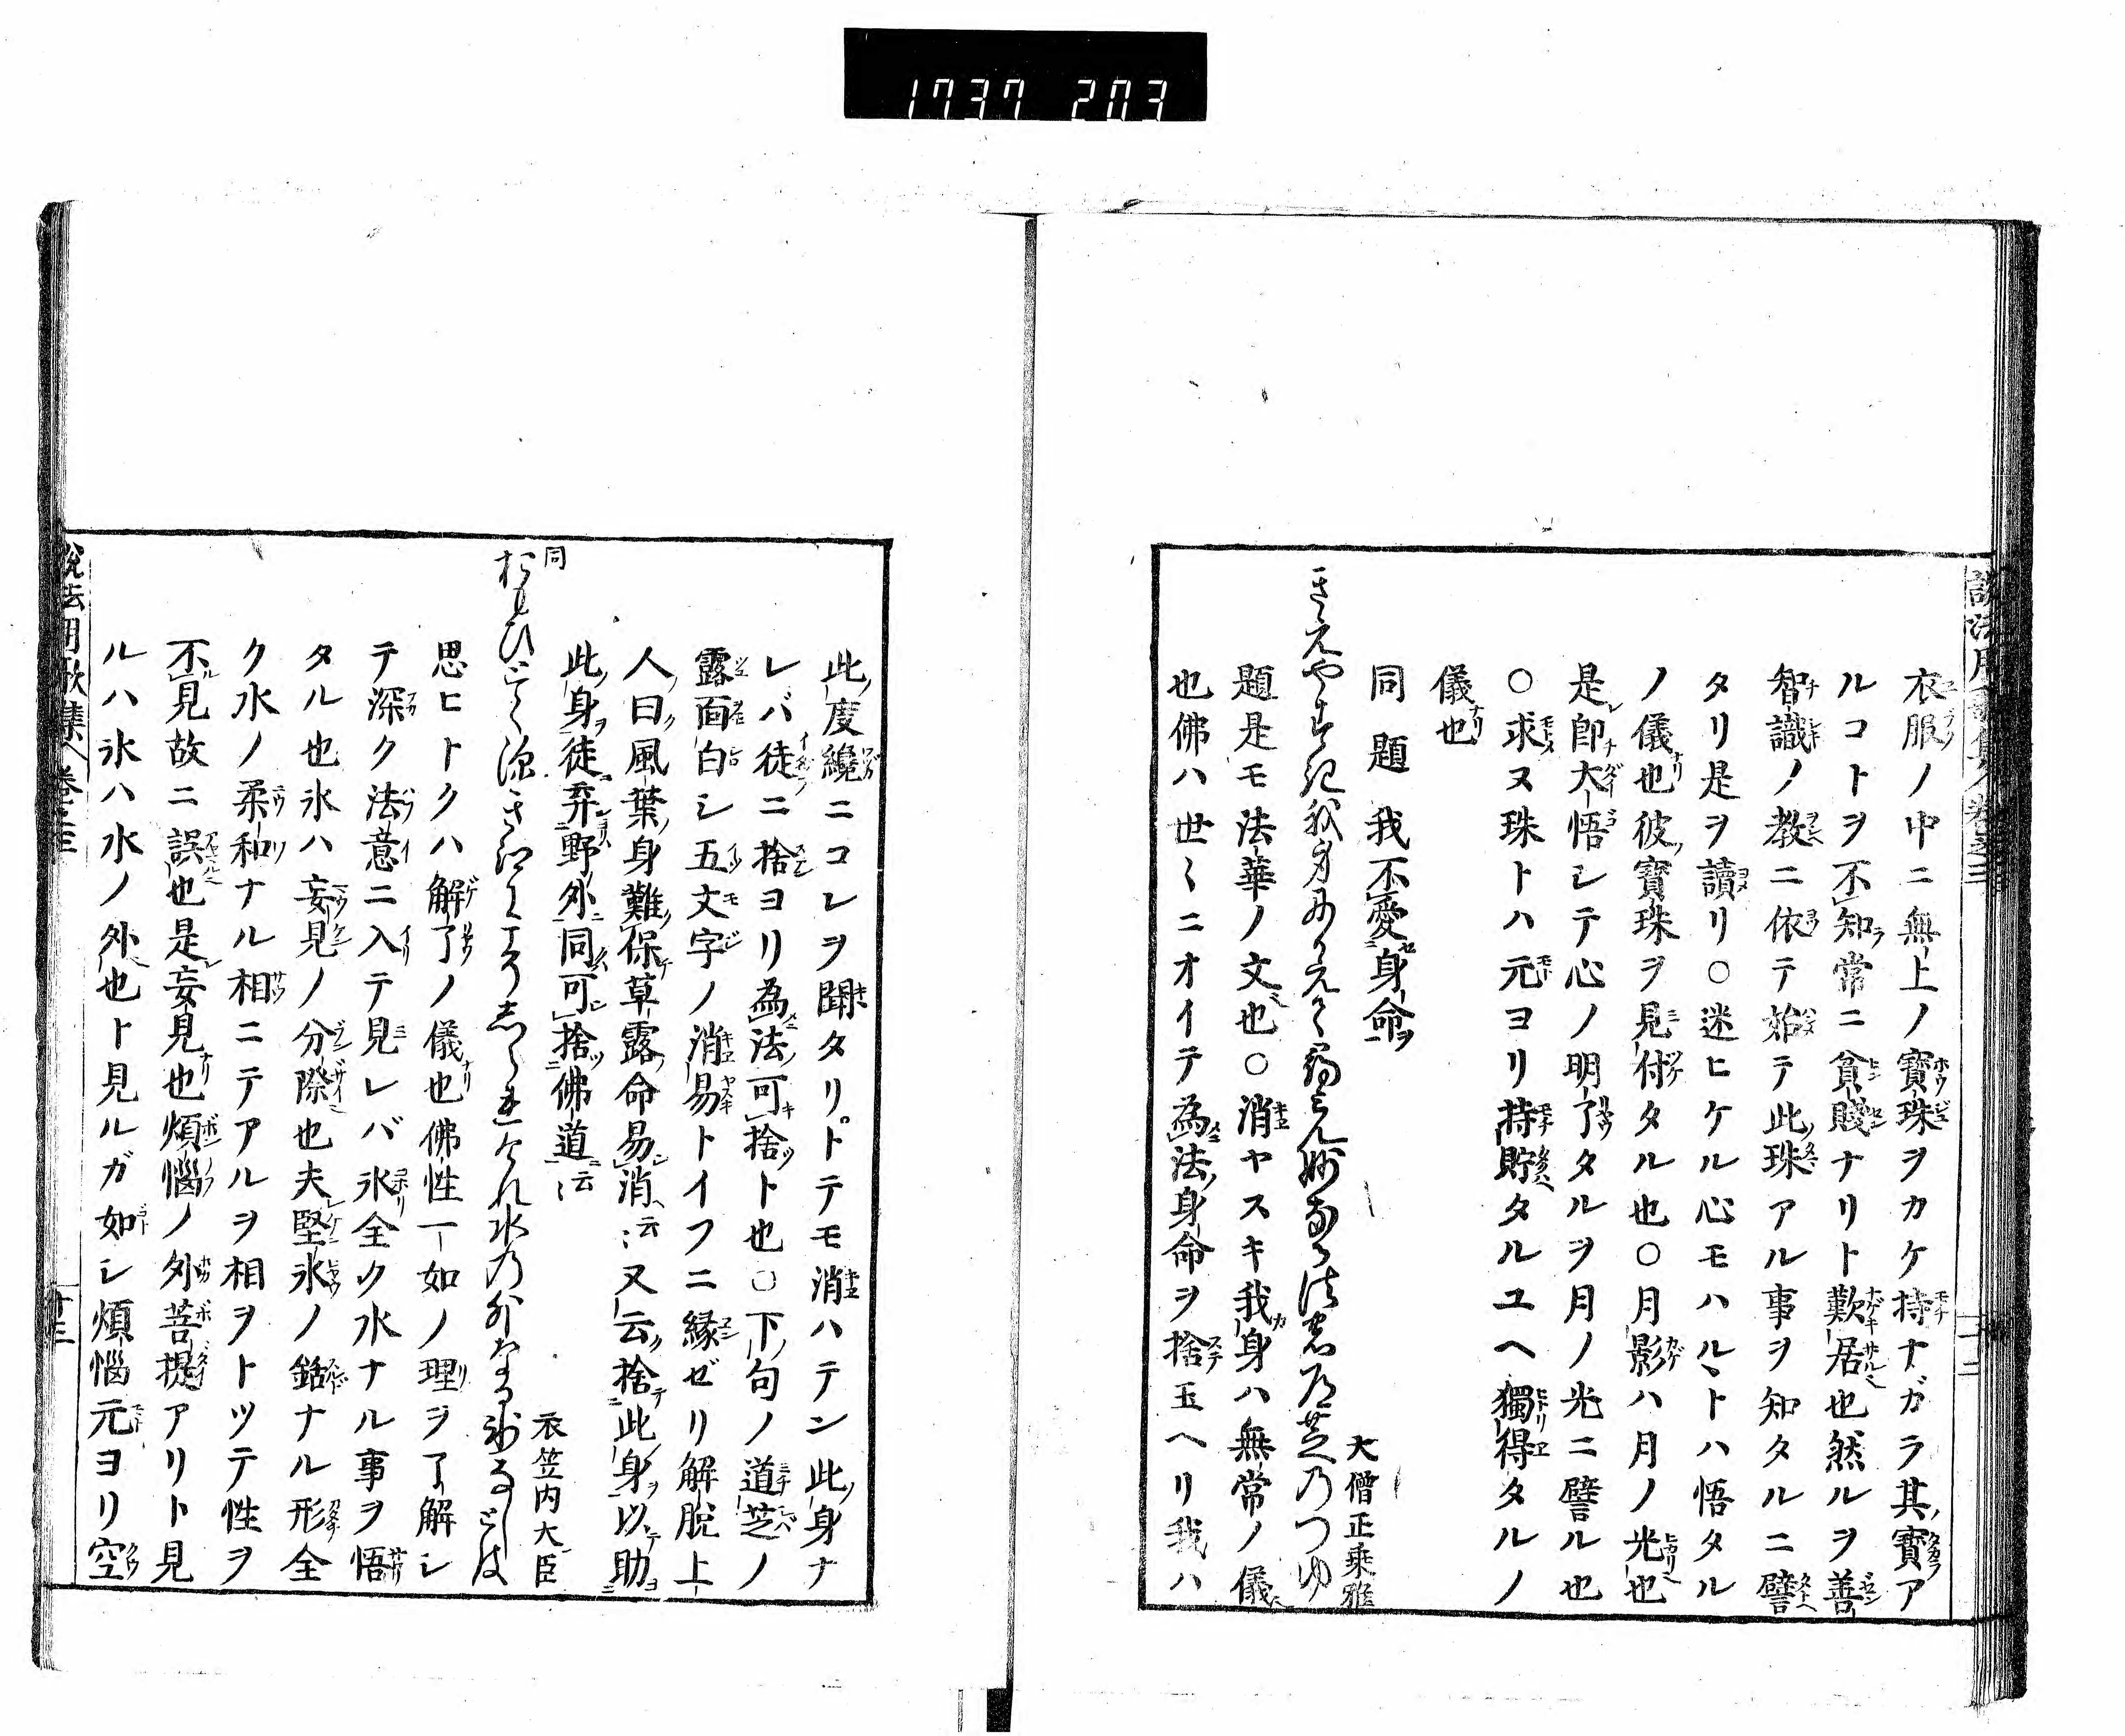 1737 203
衣服ノ中ニ無上ノ寶珠ヲカケ持ナガラ其寶ア
ルコトヲ不知常ニ貧賤ナリト歎居也然ルヲ善
智識ノ教ニ依テ始テ此珠アル事ヲ知タルニ譬
タリ是ヲ讀リ○迷ヒケル心モハルヽトハ悟タル
ノ儀也彼寶珠ヲ見付タル也○月影ハ月ノ光也
是即大悟シテ心ノ明了タルヲ月ノ光ニ譬ル也
○求ヌ珠トハ元ヨリ持貯タルユヘ獨得タルノ
儀也
同題 我不愛身命
大僧正乘雅
題是モ法華ノ文也○消ヤスキ我身ハ無常ノ儀
也佛ハ世〻ニオイテ為法身命ヲ捨玉ヘリ我ハ
此度纔ニコレヲ聞タリトテモ消ハテン此身ナ
レバ徒ニ捨ヨリ為法可捨ト也○下句ノ道芝ノ
露面白シ五文字ノ消易トイフニ縁ゼリ解脱上
人曰風葉身難保草露命易消云〻又云捨此身以助
此身徒弃野外同可捨佛道云〻
同
衣笠内大臣
思ヒトクハ解了ノ儀也佛性一如ノ理ヲ了解シ
テ深ク法意ニ入テ見レバ氷全ク水ナル事ヲ悟
タル也氷ハ妄見ノ分際也夫堅氷ノ銛ナル形全
ク水ノ柔和ナル相ニテアルヲ相ヲトツテ性ヲ
不見故ニ誤也是妄見也煩惱ノ外菩提アリト見
ルハ氷ハ水ノ外也ト見ルガ如シ煩惱元ヨリ空
說法用歌集 卷之三